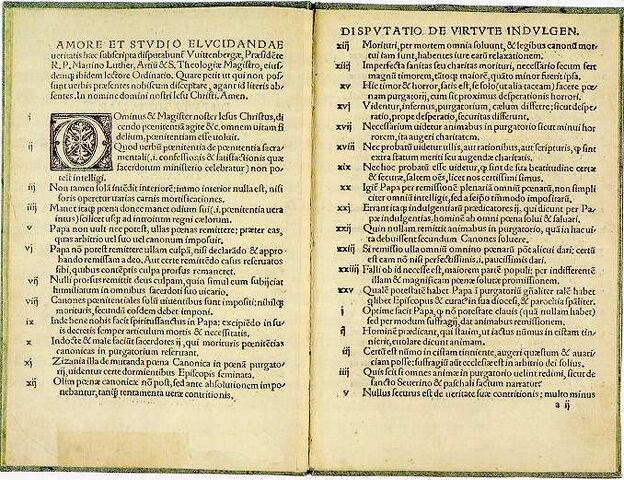 AMORE ET STVDIO ELVCIDANDAE
ueritatis hæc subscripta disputabunt̃ Vuittenbergæ, Præsidẽte
R. P. Martino Luther, Artiũ & S. Theologiæ Magistro, eiusdemq̃
ibidem lectore Ordinario. Quare petit ut qui non possunt
uerbis præsentes nobiscum disceptare, agant id literis absentes.
In nomine domini nostri Iesu Christi. Amen.
i DOminus & Magister noster Iesus Christus, dicendo
pœnitentiã agite &c. omnem uitam fidelium,
pœnitentiam esse uoluit.
ij Quod uerbũ pœnitentia de pœnitentia sacramentali
(.i. confessionis & satisfactionis quæ
sacerdotum ministerio celebratur) non poteli
intelligi.
iij Non tamen solã intẽdit interiorẽ: immo interior nulla est, nisi
foris operetur uarias carnis mortificationes.
iiij Manet itaq̃ pœna donec manet odium sui (.i. pœnitentia uera
intus) scilicet usq̃ ad introitum regni cælorum.
v Papa non uult nec potest, ullas pœnas remittere: præter eas,
quas arbitrio uel suo uel canonum imposuit.
vj Papa nõ potest remittere ullam culpã, nisi declarãdo & approbando
remissam a deo, Aut certe remittẽdo casus reseruatos
sibi, quibus cõtẽptis culpa prorsus remaneret.
vij Nulli prorsus remittit deus culpam, quin simul eum subijciat
humiliatum in omnibus sacerdoti suo uicario.
viij Canones pœnitentiales solũ uiuentibus sunt impositi; nihilq̃
morituris, secundũ eosdem debet imponi.
ix Inde bene nobis facit spiritussanctus in Papa: excipiẽdo in suis
decretis semper articulum mortis & necessitatis.
x Indocte & male faciũt sacerdotes ij, qui morituris pœnitẽtias
canonicas in purgatorium reseruant.
xj Zizania illa de mutanda pœna Canonica in pœnã purgatorij,
uidentur certe dormientibus Episcopis seminata.
xij Olim pœnæ canonicæ nõ post, sed ante absolutionem imponebantur,
tanq̃ tentamenta ueræ contritionis.
DISPVTATIO DE VIRTVTE INDVLGEN.
xiij Morituri, per mortem omnia soluunt, & legibus canonũ mortui
iam sunt, habentes iure earũ relaxationem.
xiiij Imperfecta sanitas seu charitas morituri, necessario secum fert
magnũ timorem, tãtoq̃ maiorẽ, quãto minor fuerit ipsa.
xv Hic timor & horror, satis est, se solo (ut alia taceam) facere pœnam
purgatorij, cum sit proximus desperationis horrori.
xvj Videntur, infernus, purgatorium, cælum differre; sicut desperatio,
prope desperatio, securitas differunt.
xvij Necessarium uidetur animabus in purgatorio sicut minui horrorem,
ita augeri charitatem.
xviij Nec probatũ uidetur ullis, aut rationibus, aut scripturis, q̃ sint
extra statum meriti seu augendæ charitatis.
xix Nec hoc probatũ esse uidetur, q̃ sint de sua beatitudine certæ
& securæ, saltem oẽs, licet nos certissimi simus.
xx Igit̃ Papa per remissionẽ plenariã omniũ pœnarũ, non simpliciter
omniũ intelligit, sed a seipso tm̃modo impositarũ.
xxj Errant itaq̃ indulgentiarũ prædicatores ij, qui dicunt per Papæ
indulgentias, hominẽ ab omni pœna solui & saluari.
xxij Quin nullam remittit animabus in purgatorio, quã in hac uita
debuissent secundum Canones soluere.
xxiij Si remissio ulla omniũ omnino pœnarũ põt alicui dari; certũ
est eam nõ nisi perfectissimis .i. paucissimis dari.
xxiiij Falli ob id necesse est, maiorem partẽ populi: per indifferentẽ
illam & magnificam pœnæ solutæ promissionem.
xxv Qualẽ potestatẽ habet Papa ĩ purgatoriũ gñaliter talẽ habet
q̃libet Episcopus & curat9 in sua diocesi, & parochia spãliter.
i Optime facit Papa, q̃ nõ potestate clauis (quã nullam habet)
sed per modum suffragij, dat animabus remissionem.
ij Hominẽ prædicant, qui statim, ut iactus nũmus in cistam tinnierit,
euolare dicunt animam.
iij Certũ est nũmo in cistam tinniente, augeri quæstum & auariciam
posse; suffragiũ aut̃ ecclesiæ est in arbitrio dei solius.
iiij Quis scit si omnes animæ in purgatorio uelint redimi, sicut de
sancto Seuerino & paschali factum narratur
v Nullus securus est de ueritate suæ contritionis; multo minus
a ij